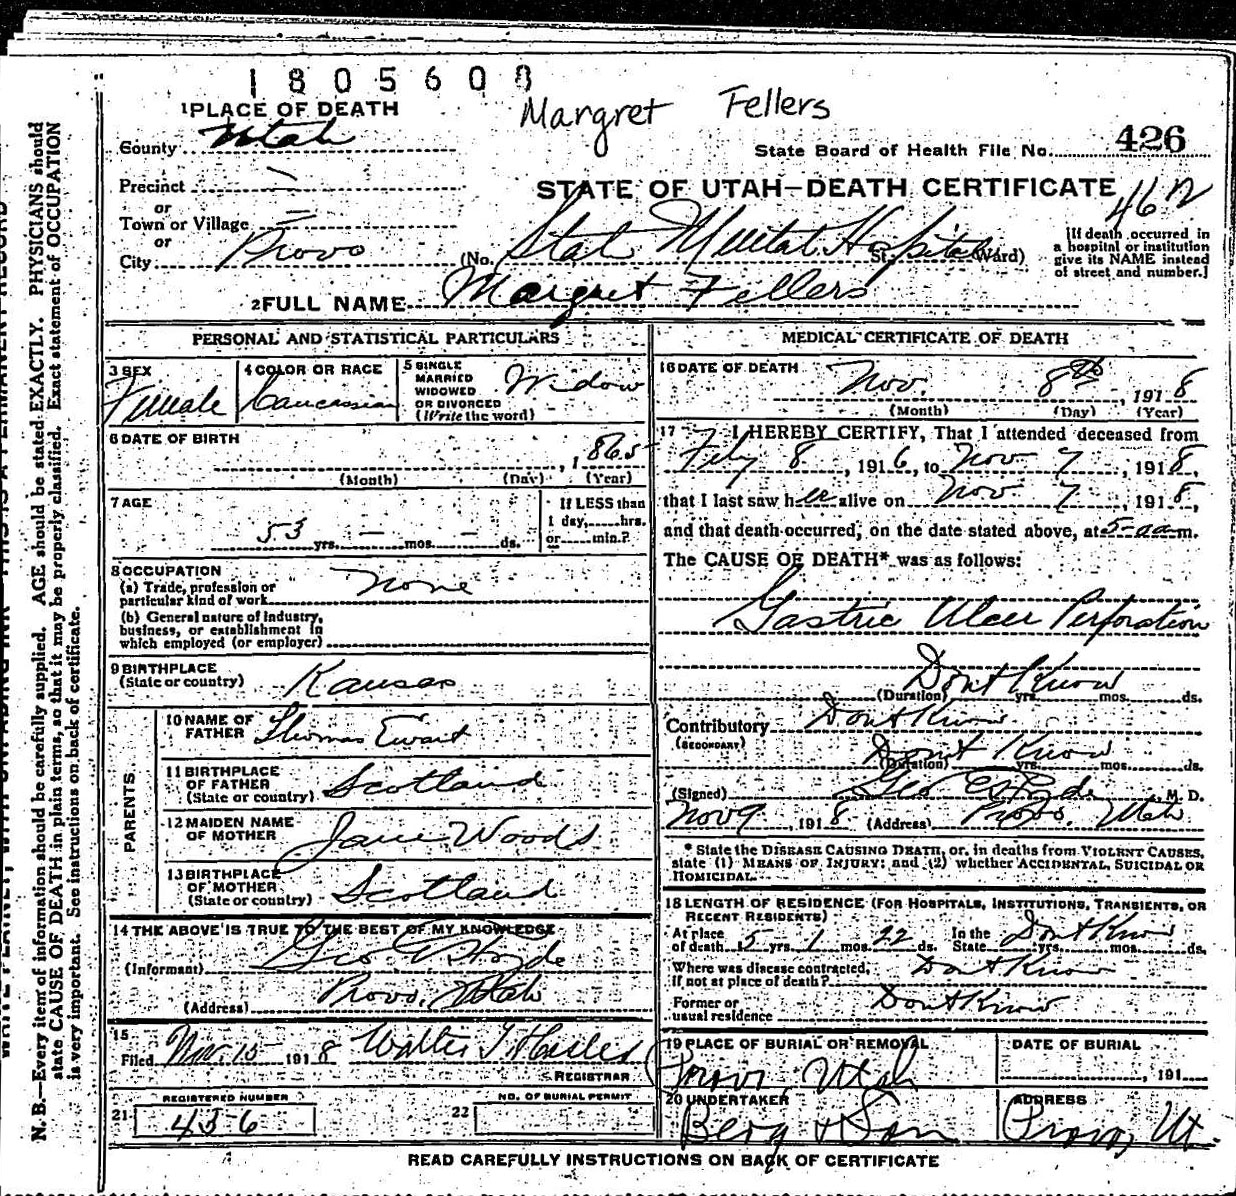 1805608
Margret Fellers
1 PLACE OF DEATH
County Utah
State Board of Health File No. 426
Precinct —
STATE OF UTAH—DEATH CERTIFICATE
462
or
Town or Village =
or
City Provo (No. State Mental Hospital St. Ward)
[If death occurred in
a hospital or institution
give its NAME instead
of street and number.]
2 FULL NAME Margret Fellers
PERSONAL AND STATISTICAL PARTICULARS
3 SEX
Female
4 COLOR OR RACE
Caucassian
5 SINGLE
MARRIED
WIDOWED
OR DIVORCED
(Write the word)
Widow
6 DATE OF BIRTH
, 1865
(Month) (Day) (Year)
7 AGE
53 yrs. — mos. — ds.
If LESS than
1 day, hrs.
or min.?
8 OCCUPATION
(a) Trade, profession or
particular kind of work
None
(b) General nature of industry,
business, or establishment in
which employed (or employer)
9 BIRTHPLACE
(State or country) Kansas
PARENTS
10 NAME OF
FATHER Thomas Ewart
11 BIRTHPLACE
OF FATHER
(State or country) Scotland
12 MAIDEN NAME
OF MOTHER Jane Woods
13 BIRTHPLACE
OF MOTHER
(State or country) Scotland
14 THE ABOVE IS TRUE TO THE BEST OF MY KNOWLEDGE
(Informant) Geo. E Hyde
(Address) Provo, Utah
15
Filed Nov. 15 1918 Walter T Hasler
REGISTRAR
REGISTERED NUMBER
21 436
NO. OF BURIAL PERMIT
22
MEDICAL CERTIFICATE OF DEATH
16 DATE OF DEATH
Nov. 8th, 1918
(Month) (Day) (Year)
17 I HEREBY CERTIFY, That I attended deceased from
Feby 8, 1916, to Nov 7, 1918,
that I last saw her alive on Nov 7, 1918,
and that death occurred, on the date stated above, at 5-am.
The CAUSE OF DEATH* was as follows:
Gastric Ulcer Perforation
Dont Know
(Duration) yrs. mos. ds.
Contributory Dont Know
(SECONDARY)
Dont Know
(Duration) yrs. mos. ds.
(Signed) Geo E Hyde M. D.
Nov 9, 1918 (Address) Provo, Utah
* State the DISEASE CAUSING DEATH, or, in deaths from VIOLENT CAUSES,
state (1) MEANS OF INJURY; and (2) whether ACCIDENTAL, SUICIDAL OR
HOMICIDAL.
18 LENGTH OF RESIDENCE (FOR HOSPITALS, INSTITUTIONS, TRANSIENTS, OR
RECENT RESIDENTS)
At place
of death 5 yrs. 1 mos. 22 ds.
In the
State Dont Know yrs. mos. ds.
Where was disease contracted,
if not at place of death? Dont Know
Former or
usual residence Dont Know
19 PLACE OF BURIAL OR REMOVAL
Provo, Utah
DATE OF BURIAL
, 191
20 UNDERTAKER
Berg & Son
ADDRESS
Provo, Ut.
READ CAREFULLY INSTRUCTIONS ON BACK OF CERTIFICATE
N. B.—Every item of information should be carefully supplied. AGE should be stated EXACTLY. PHYSICIANS should
state CAUSE OF DEATH in plain terms, so that it may be properly classified. Exact statement of OCCUPATION
is very important. See instructions on back of certificate.